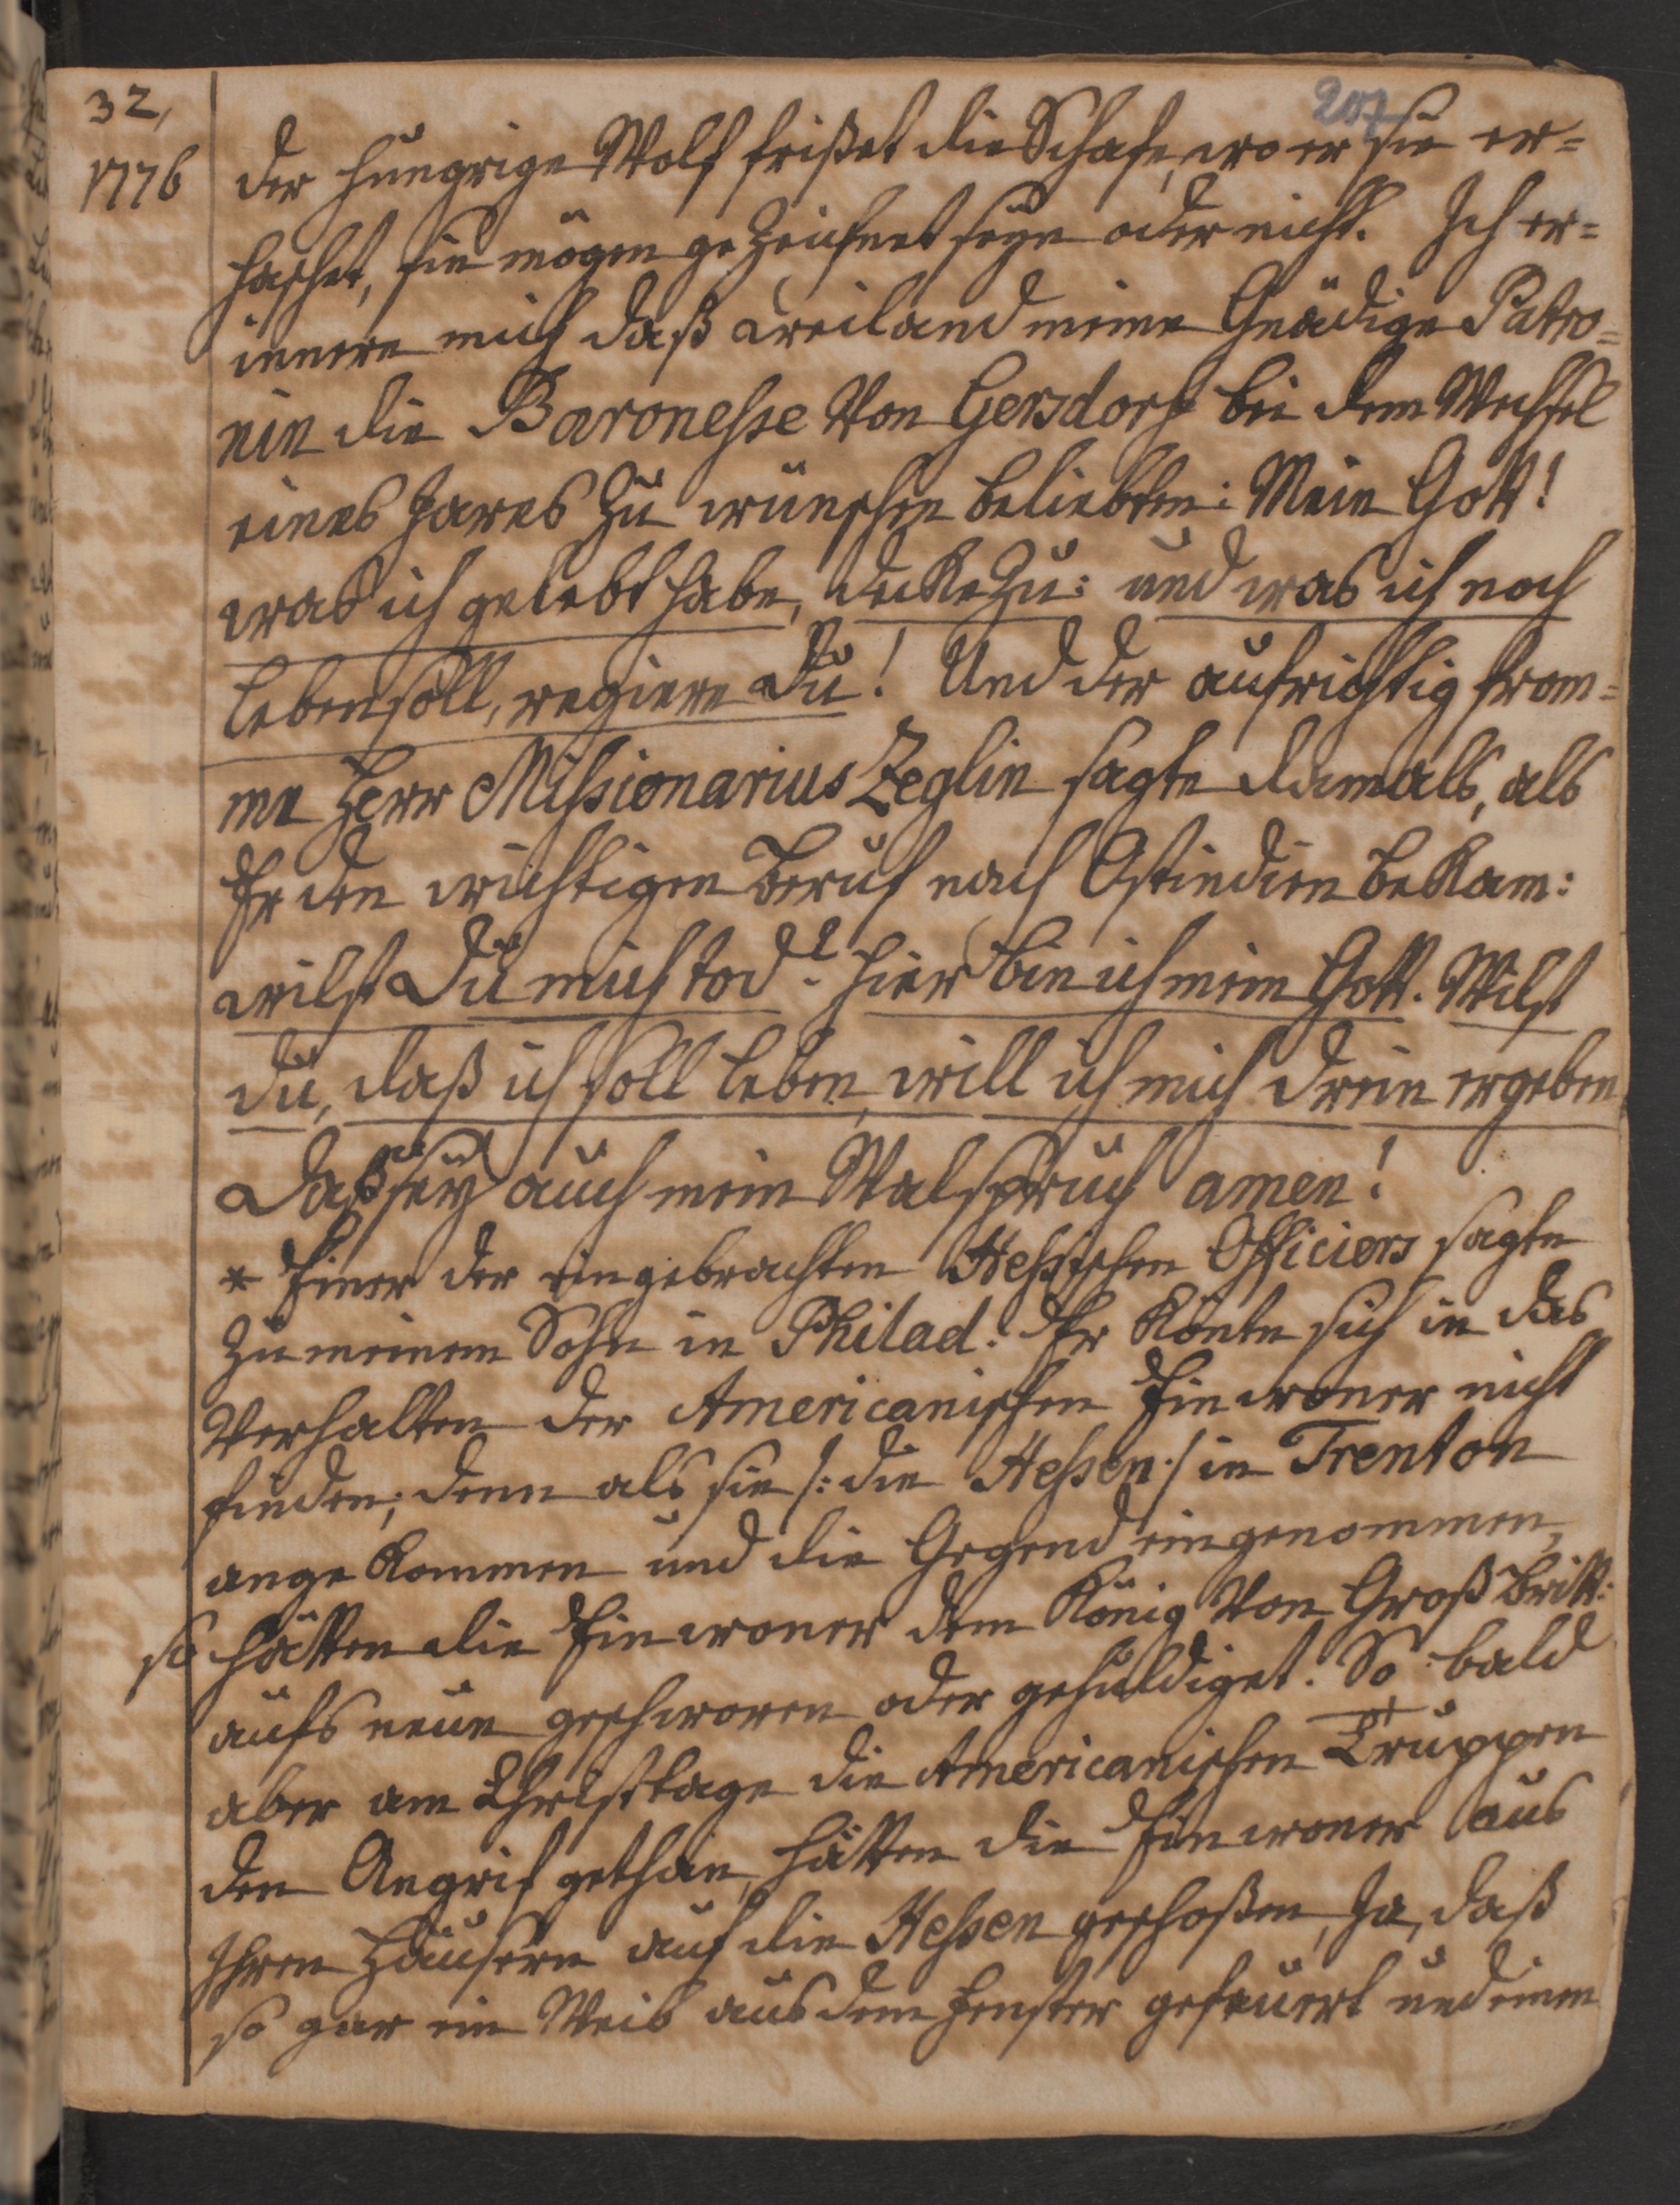 32, 207
1776
der hungrige Wolf frißet die Schafe, wo er sie er=
haschet, sie mögen gezeichnet seyn oder nicht. Ich er=
innere mich daß weiland meine Gnädige Patro=
nin die Baronesse von Gersdorf bei dem Wechsel
eines Jares zu wünschen beliebten: Mein Gott!
was ich gelebt habe, decke zu: und was ich noch
leben soll, regiere Du! Und der aufrichtig from=
me Herr Missionarius Zeglin sagte damals, als
Er den wichtigen Beruf nach Ostindien bekam:
wilst Du mich tod? hier bin ich mein Gott. Wilst
du, daß ich soll leben, will ich mich drein ergeben
Daß sey auch mein Walspruch amen!
* Einer der eingebrachten Hessischen Officiers sagte
zu meinem Sohn in Philad: Er könte sich in das
Verhalten der Americanischen Einwoner nicht
finden; denn als sie /: die Hessen :/ in Trenton
angekommen und die Gegend eingenommen,
so hätten die Einwoner dem König von Groß Britt:
aufs neue geschworen oder gehuldiget. So bald
aber am Christtage die Americanischen Truppen
den Angrif gethan, hätten die Einwoner aus
Ihren Häusern auf die Hessen geschoßen, Ja, daß
so gar ein Weib aus dem Fenster gefeuert und einen